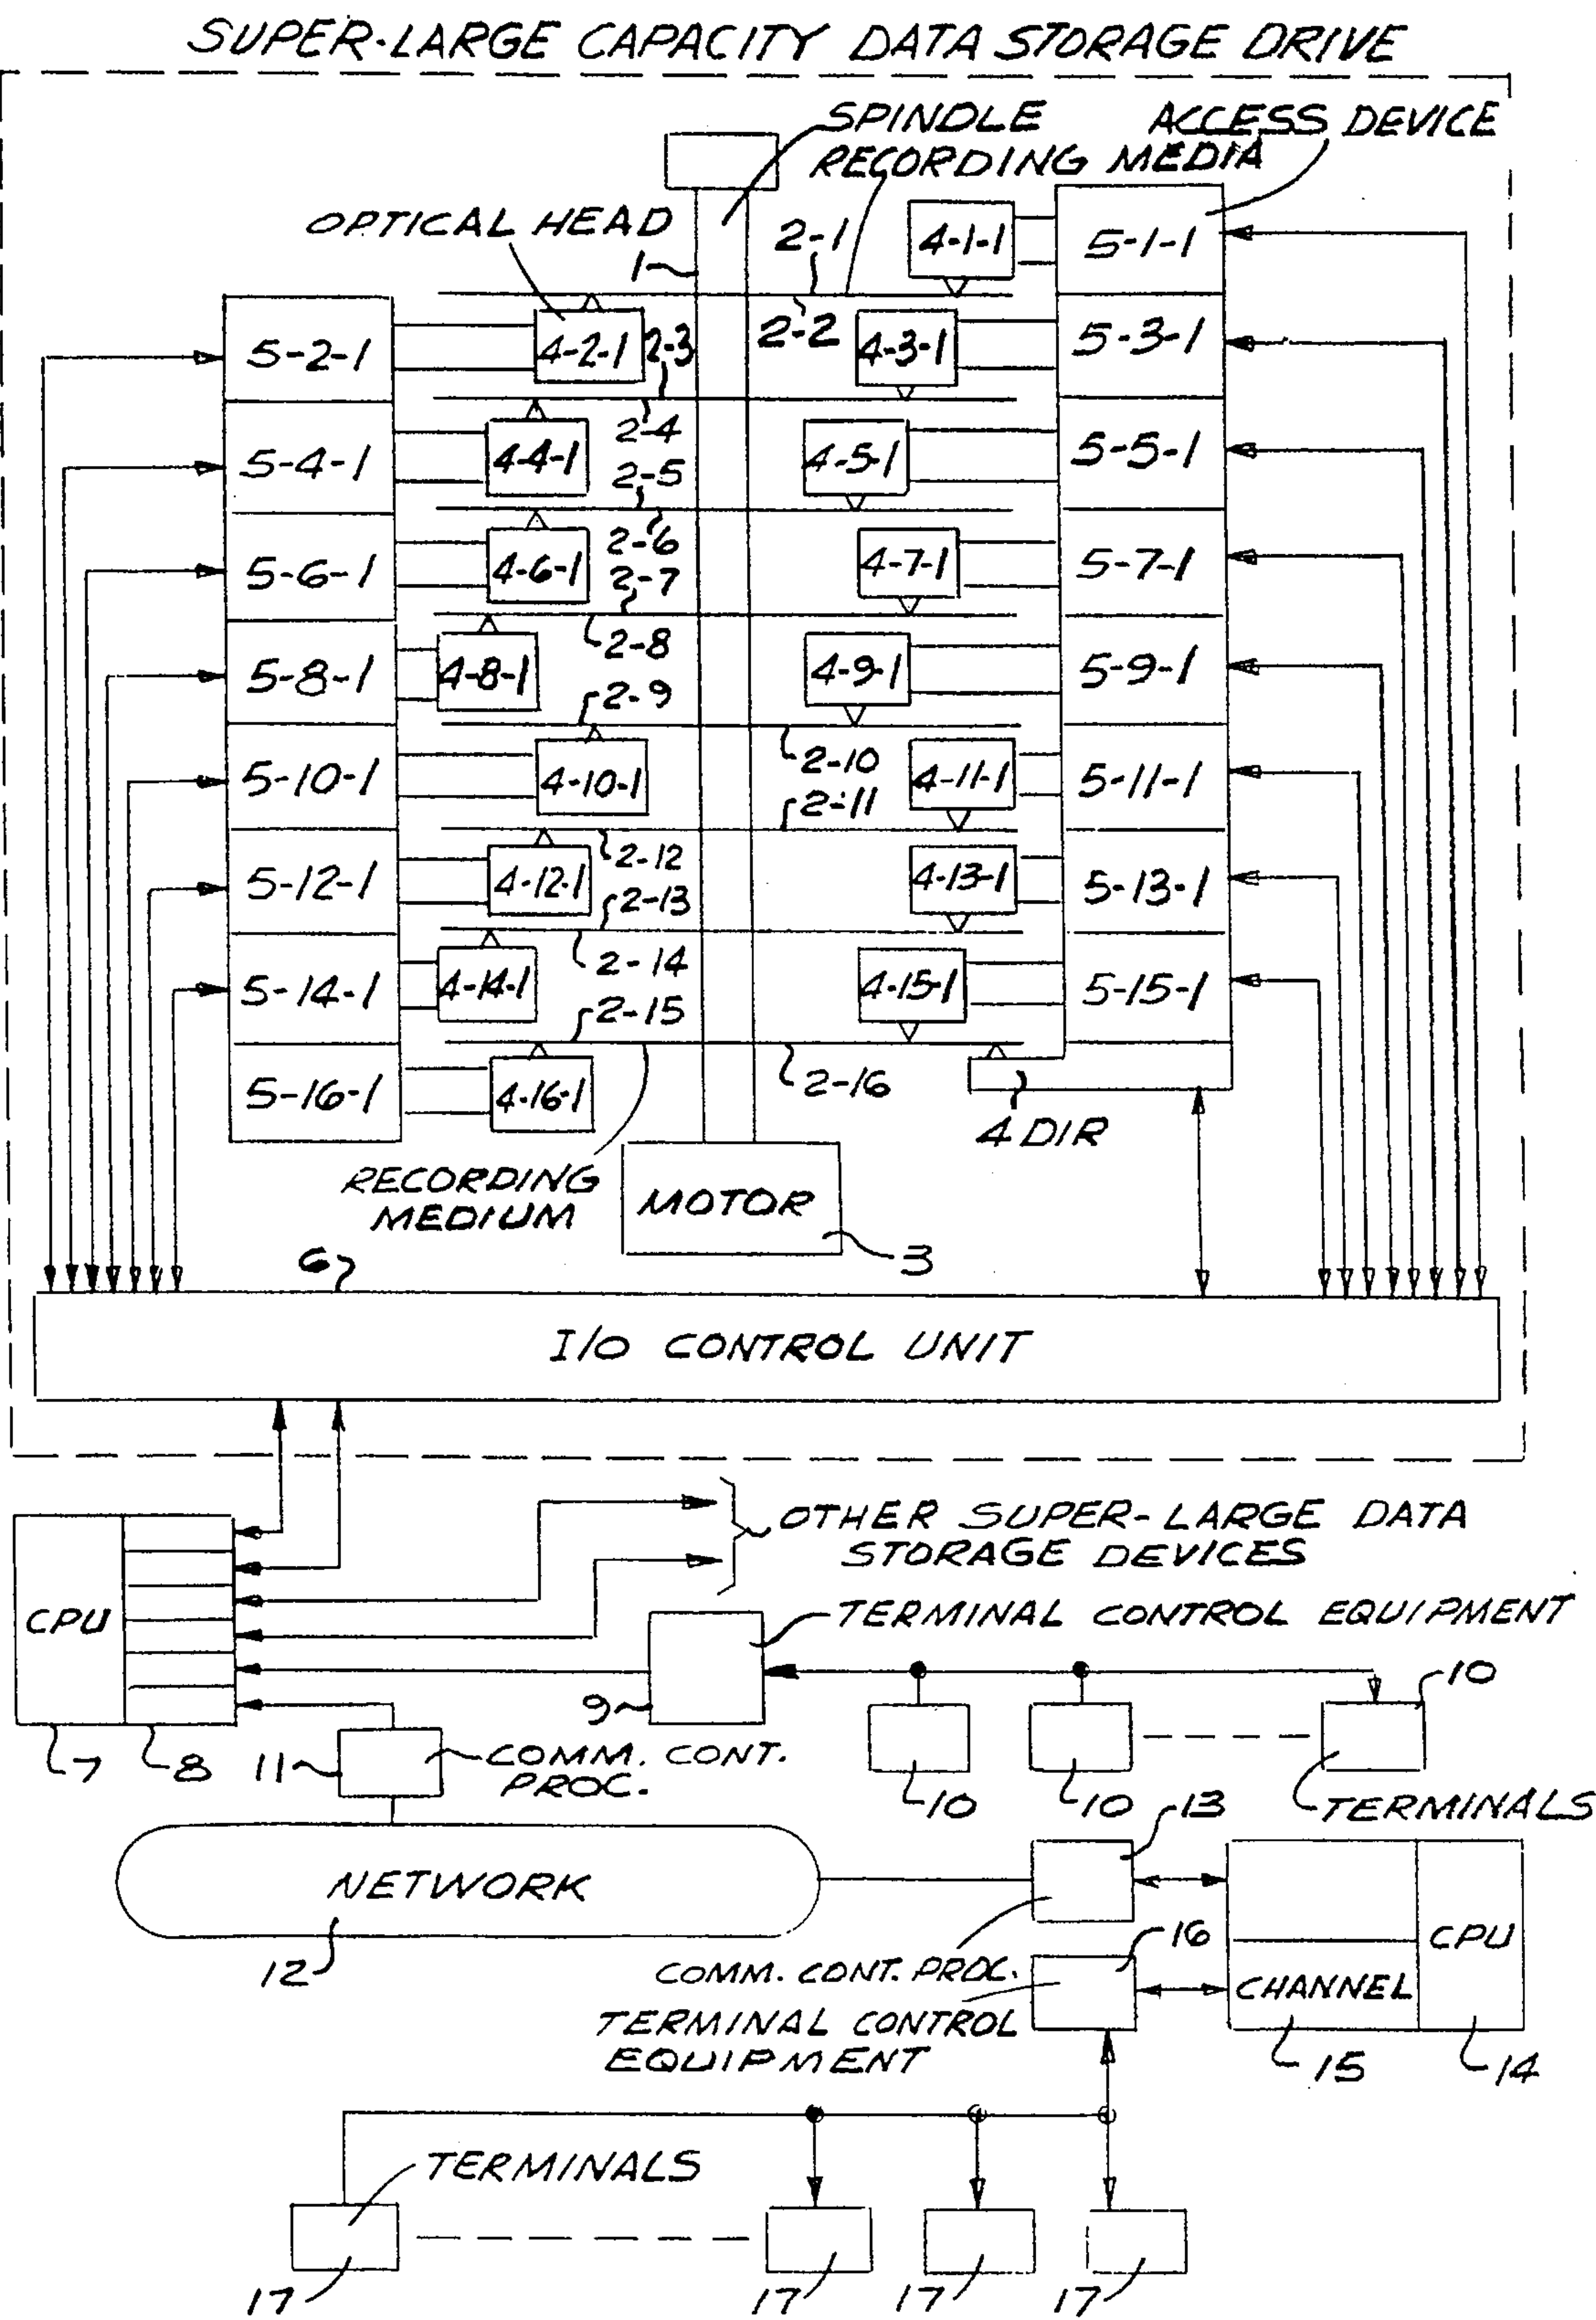 SUPER-LARGE CAPACITY DATA STORAGE DRIVE
SPINDLE
ACCESS DEVICE
RECORDING MEDIA
OPTICAL HEAD
2-1
4-1-1
5-1-1
1
2-2
5-2-1
4-2-1
2-3
4-3-1
5-3-1
2-4
5-4-1
4-4-1
2-5
4-5-1
5-5-1
2-6
5-6-1
4-6-1
2-7
4-7-1
5-7-1
2-8
5-8-1
4-8-1
2-9
4-9-1
5-9-1
2-10
5-10-1
4-10-1
2-11
4-11-1
5-11-1
2-12
5-12-1
4-12-1
2-13
4-13-1
5-13-1
2-14
5-14-1
4-14-1
2-15
4-15-1
5-15-1
2-16
5-16-1
4-16-1
4 DIR
RECORDING
MEDIUM
MOTOR
3
6
I/O CONTROL UNIT
OTHER SUPER-LARGE DATA
STORAGE DEVICES
CPU
TERMINAL CONTROL EQUIPMENT
9
10
7
8
11
COMM. CONT.
PROC.
10
10
TERMINALS
13
NETWORK
12
16
CPU
COMM. CONT. PROC.
CHANNEL
TERMINAL CONTROL
EQUIPMENT
15
14
TERMINALS
17
17
17
17